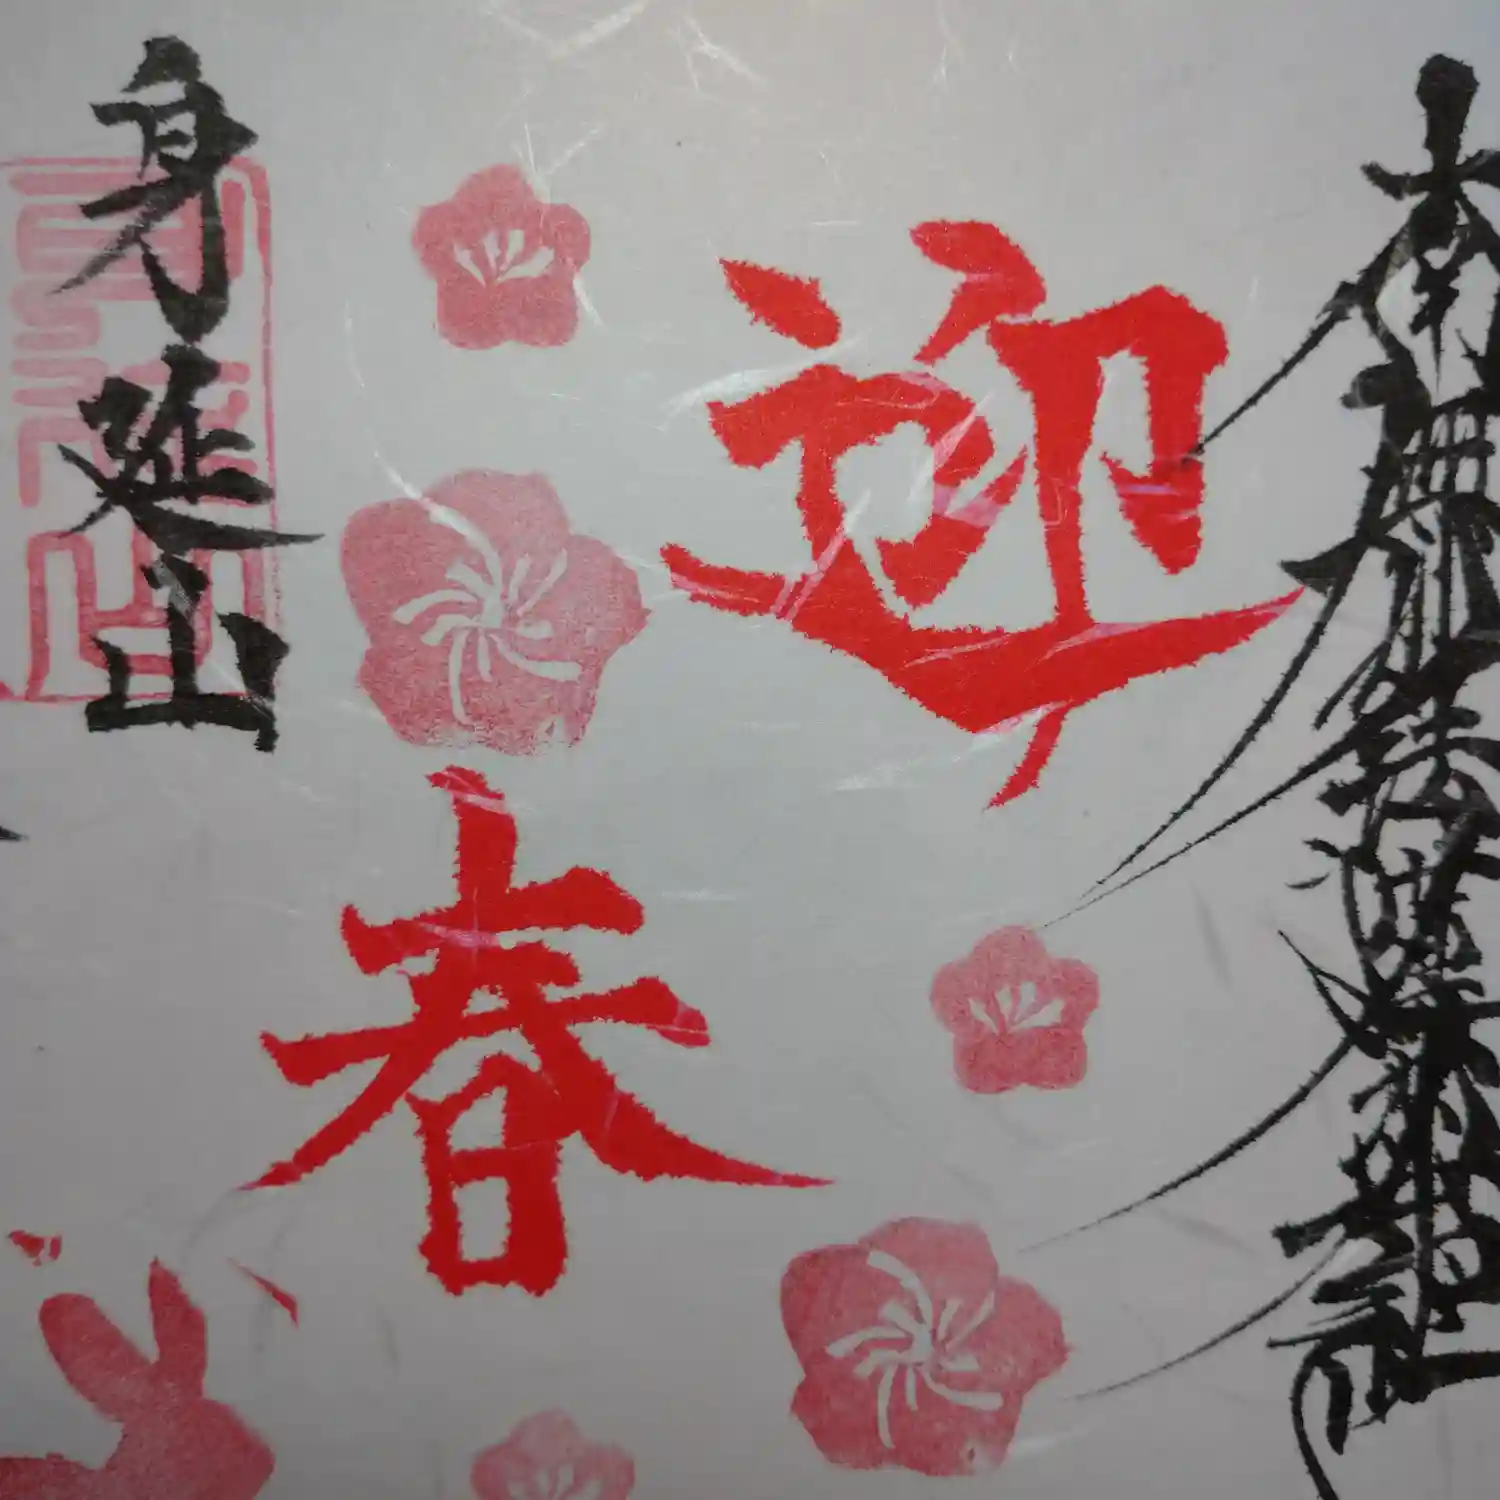 南無妙法蓮華経
迎春
身延山